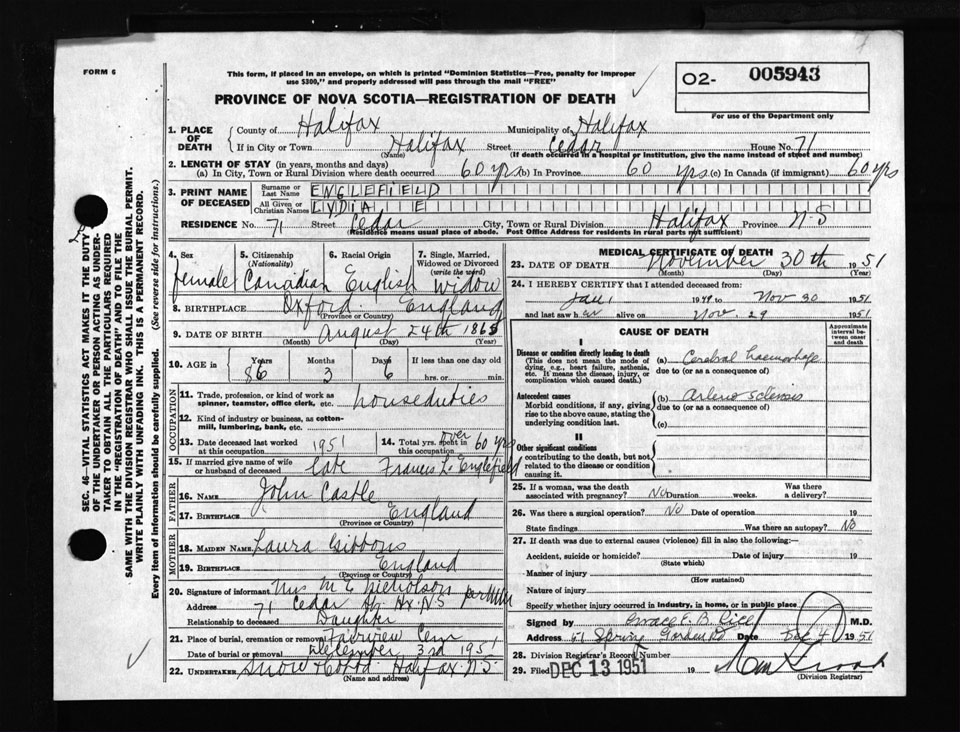 FORM 6
This form, if placed in an envelope, on which is printed "Dominion Statistics—Free, penalty for improper
use $300," and properly addressed will pass through the mail "FREE"
O2- 005943
For use of the Department only
PROVINCE OF NOVA SCOTIA—REGISTRATION OF DEATH
1. PLACE OF DEATH
County of Halifax Municipality of Halifax
If in City or Town Halifax Street Cedar House No. 71
(Name) (If death occurred in a hospital or institution, give the name instead of street and number)
2. LENGTH OF STAY (in years, months and days)
(a) In City, Town or Rural Division where death occurred 60 yrs (b) In Province 60 yrs (c) In Canada (if immigrant) 60 yrs
3. PRINT NAME OF DECEASED
Surname or Last Name ENGLEFIELD
All Given or Christian Names LYDIA E
RESIDENCE No. 71 Street Cedar City, Town or Rural Division Halifax Province N-S
(Residence means usual place of abode. Post Office Address for residents in rural parts not sufficient)
4. Sex
female
5. Citizenship (Nationality)
Canadian
6. Racial Origin
English
7. Single, Married, Widowed or Divorced (write the word)
Widow
8. BIRTHPLACE Oxford England
(Province or Country)
9. DATE OF BIRTH August 24th 1865
(Month) (Day) (Year)
10. AGE in Years 86 Months 3 Days 6 If less than one day old
hrs. or min.
OCCUPATION
11. Trade, profession, or kind of work as spinner, teamster, office clerk, etc. houseduties
12. Kind of industry or business, as cotton-mill, lumbering, bank, etc.
13. Date deceased last worked at this occupation 1951
14. Total yrs. spent in this occupation over 60 yrs
15. If married give name of wife or husband of deceased late Francis L. Englefield
FATHER
16. NAME John Castle
17. BIRTHPLACE England
(Province or Country)
MOTHER
18. MAIDEN NAME Laura Gibbons
19. BIRTHPLACE England
(Province or Country)
20. Signature of informant Mrs M E Nicholson per
Address 71 Cedar St Hx N.S
Relationship to deceased Daughter
21. Place of burial, cremation or removal Fairview Cem
Date of burial or removal December 3rd 1951
22. UNDERTAKER Snow & Co Ltd. Halifax N.S.
(Name and address)
MEDICAL CERTIFICATE OF DEATH
23. DATE OF DEATH November 30th 1951
(Month) (Day) (Year)
24. I HEREBY CERTIFY that I attended deceased from:
Jan 1 1949 to Nov 30 1951
and last saw her alive on Nov. 29 1951
CAUSE OF DEATH
Approximate interval between onset and death
I
Disease or condition directly leading to death
(This does not mean the mode of dying, e.g., heart failure, asthenia, etc. It means the disease, injury, or complication which caused death.)
(a) Cerebral haemorrhage
due to (or as a consequence of)
Antecedent causes
Morbid conditions, if any, giving rise to the above cause, stating the underlying condition last.
(b) Arterio sclerosis
due to (or as a consequence of)
(c)
II
Other significant conditions
contributing to the death, but not related to the disease or condition causing it.
25. If a woman, was the death associated with pregnancy? No Duration weeks. Was there a delivery?
26. Was there a surgical operation? No Date of operation 19
State findings Was there an autopsy? No
27. If death was due to external causes (violence) fill in also the following:—
Accident, suicide or homicide? Date of injury 19
(State which)
Manner of injury
(How sustained)
Nature of injury
Specify whether injury occurred in industry, in home, or in public place
Signed by Grace E. B. Rice M.D.
Address 51 Spring Garden Rd Date Dec 4 1951
28. Division Registrar's Record Number
29. Filed DEC 13 1951 19
(Division Registrar)
SEC. 46—VITAL STATISTICS ACT MAKES IT THE DUTY
OF THE UNDERTAKER OR PERSON ACTING AS UNDER-
TAKER TO OBTAIN ALL THE PARTICULARS REQUIRED
IN THE "REGISTRATION OF DEATH" AND TO FILE THE
SAME WITH THE DIVISION REGISTRAR WHO SHALL ISSUE THE BURIAL PERMIT.
WRITE PLAINLY WITH UNFADING INK. THIS IS A PERMANENT RECORD.
Every item of information should be carefully supplied. (See reverse side for instructions.)